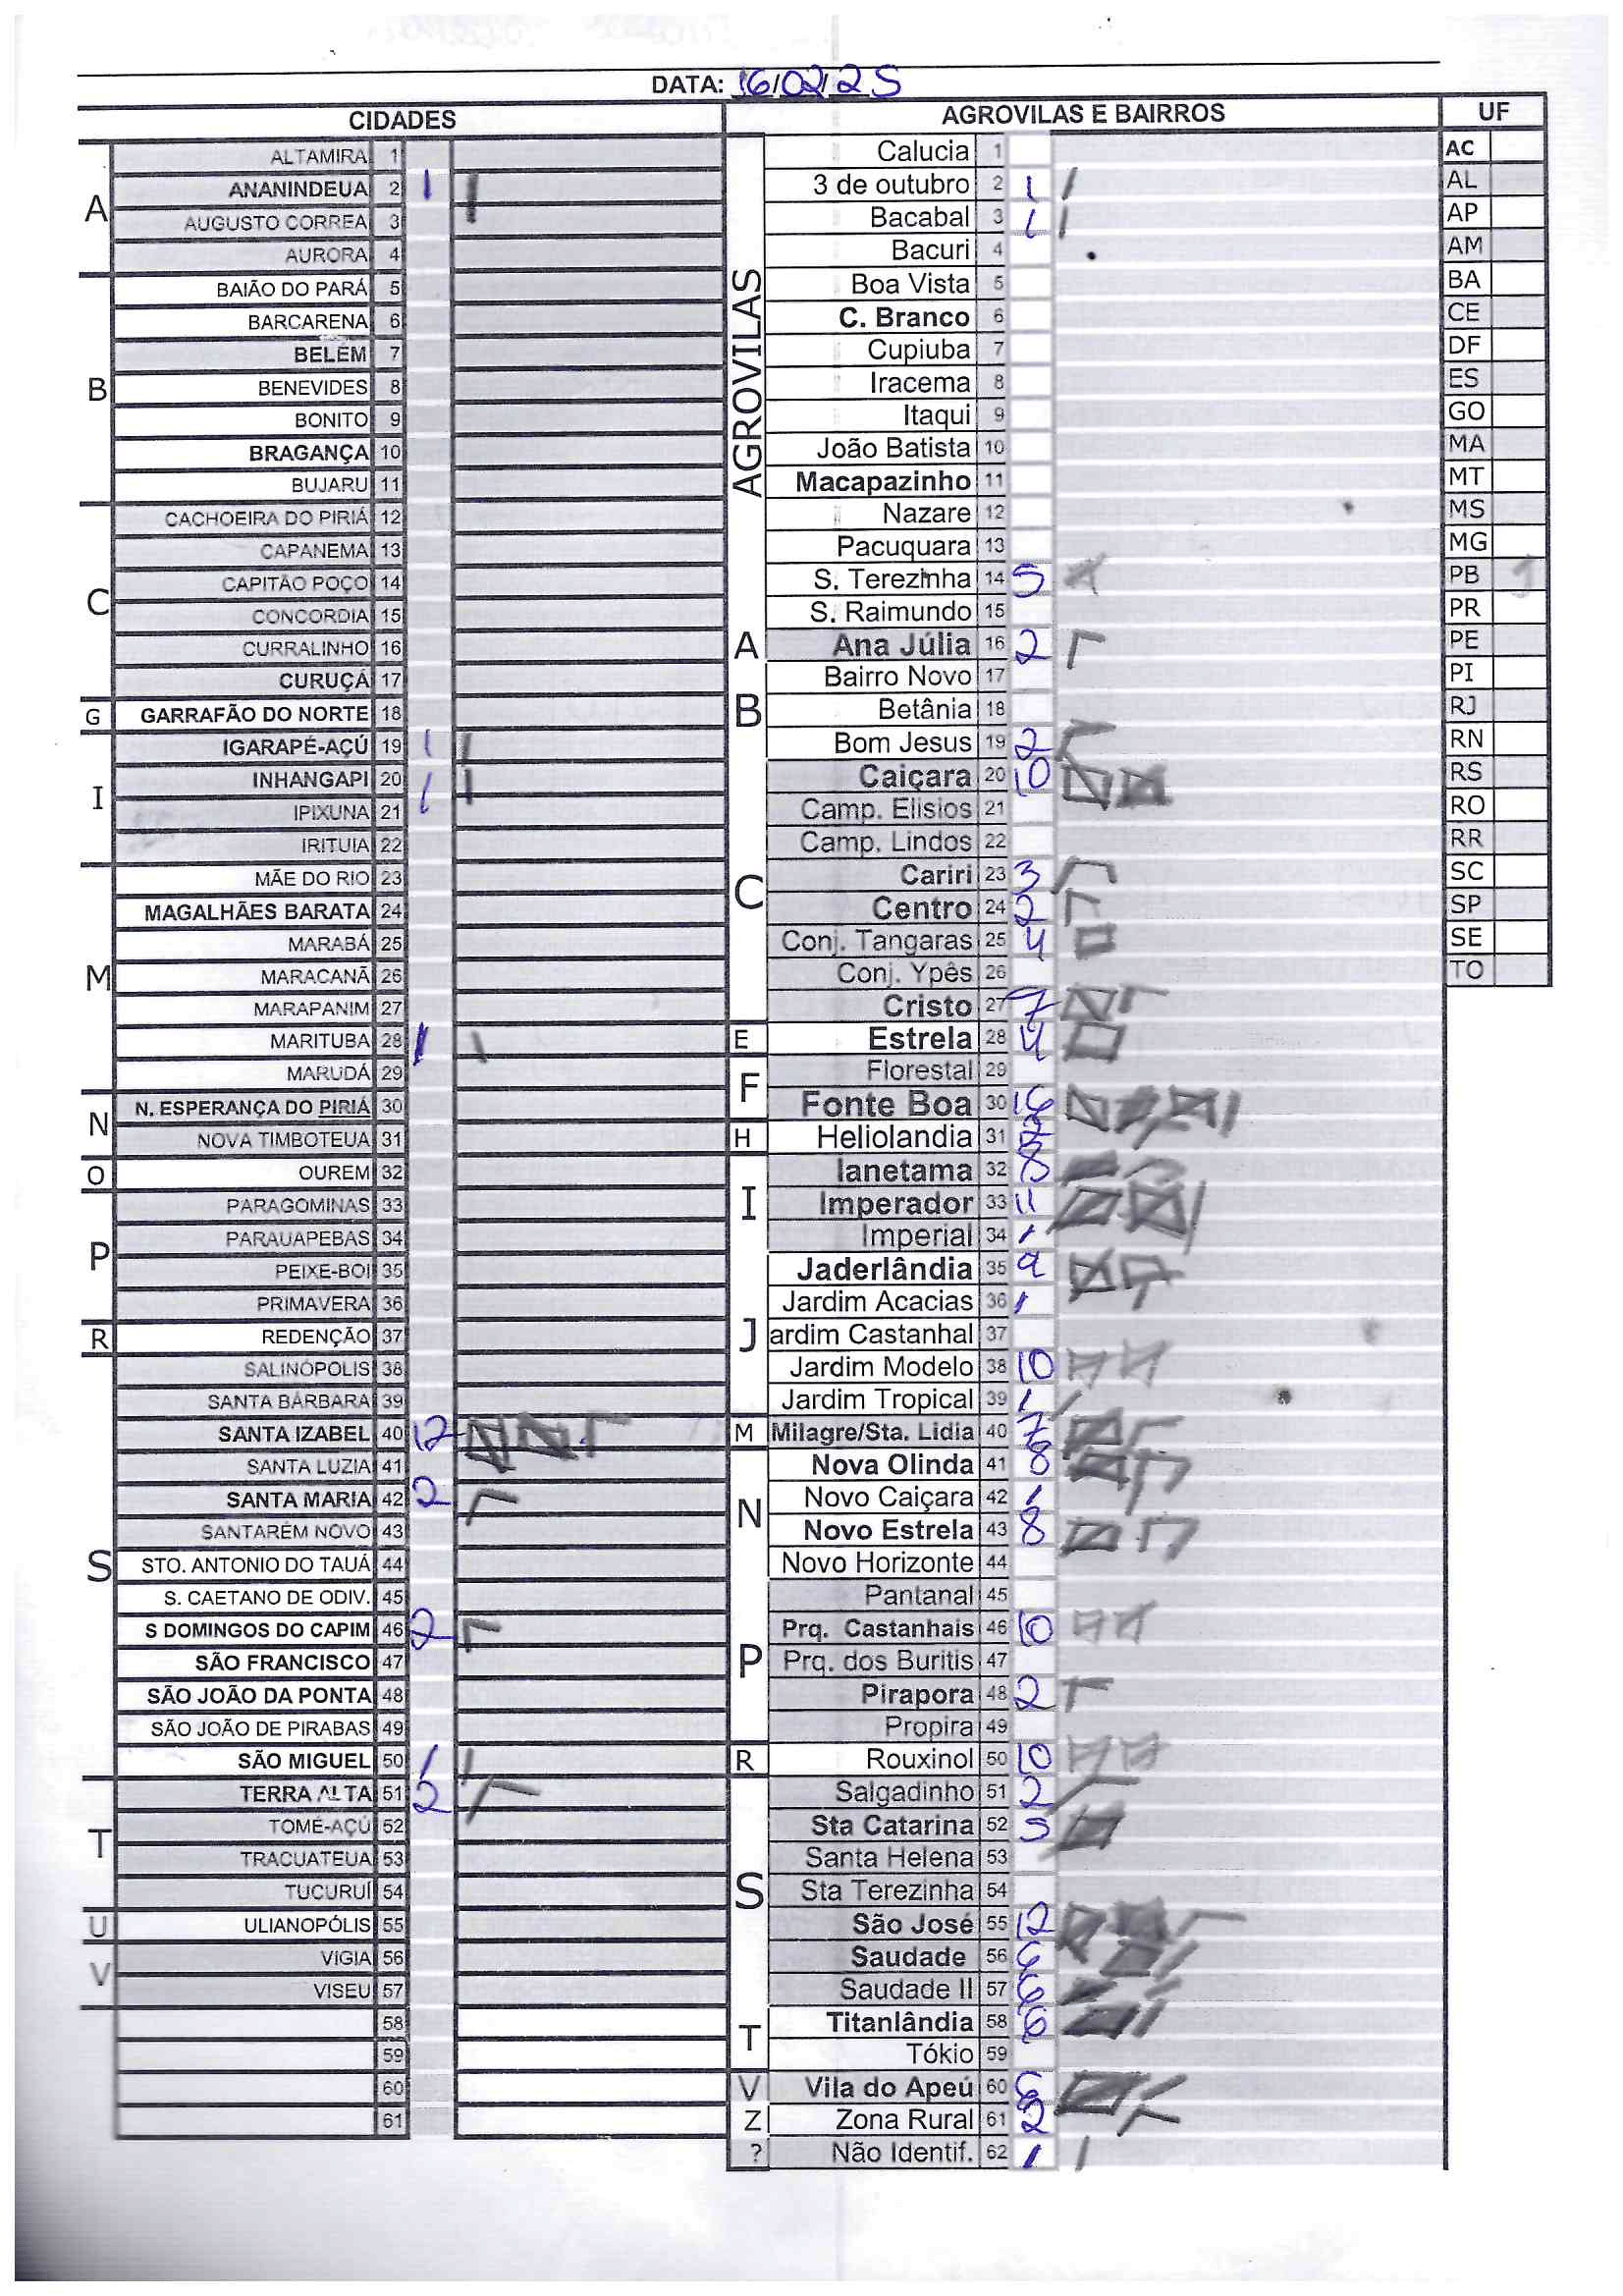 DATA: 16/02/25
CIDADES
A
ALTAMIRA 1
ANANINDEUA 2 1
AUGUSTO CORREA 3
AURORA 4
B
BAIÃO DO PARÁ 5
BARCARENA 6
BELÉM 7
BENEVIDES 8
BONITO 9
BRAGANÇA 10
BUJARU 11
C
CACHOEIRA DO PIRIÁ 12
CAPANEMA 13
CAPITÃO POÇO 14
CONCORDIA 15
CURRALINHO 16
CURUÇÁ 17
G
GARRAFÃO DO NORTE 18
I
IGARAPÉ-AÇÚ 19 1
INHANGAPI 20 1
IPIXUNA 21
IRITUIA 22
M
MÃE DO RIO 23
MAGALHÃES BARATA 24
MARABÁ 25
MARACANÃ 26
MARAPANIM 27
MARITUBA 28 1
MARUDÁ 29
N
N. ESPERANÇA DO PIRIÁ 30
NOVA TIMBOTEUA 31
O
OUREM 32
P
PARAGOMINAS 33
PARAUAPEBAS 34
PEIXE-BOI 35
PRIMAVERA 36
R
REDENÇÃO 37
S
SALINÓPOLIS 38
SANTA BÁRBARA 39
SANTA IZABEL 40 12
SANTA LUZIA 41
SANTA MARIA 42 2
SANTARÉM NOVO 43
STO. ANTONIO DO TAUÁ 44
S. CAETANO DE ODIV. 45
S DOMINGOS DO CAPIM 46 2
SÃO FRANCISCO 47
SÃO JOÃO DA PONTA 48
SÃO JOÃO DE PIRABAS 49
SÃO MIGUEL 50 1
T
TERRA ALTA 51 2
TOMÉ-AÇÚ 52
TRACUATEUA 53
TUCURUÍ 54
U
ULIANOPÓLIS 55
V
VIGIA 56
VISEU 57
58
59
60
61
AGROVILAS E BAIRROS
AGROVILAS
Calucia 1
3 de outubro 2 1
Bacabal 3 1
Bacuri 4
Boa Vista 5
C. Branco 6
Cupiuba 7
Iracema 8
Itaqui 9
João Batista 10
Macapazinho 11
Nazare 12
Pacuquara 13
S. Terezinha 14 5
S. Raimundo 15
A
Ana Júlia 16 2
B
Bairro Novo 17
Betânia 18
Bom Jesus 19 2
C
Caiçara 20 10
Camp. Elisios 21
Camp. Lindos 22
Cariri 23 3
Centro 24 2
Conj. Tangaras 25 4
Conj. Ypês 26
Cristo 27 7
E
Estrela 28 4
F
Florestal 29
Fonte Boa 30 16
H
Heliolandia 31
I
Ianetama 32 8
Imperador 33 11
Imperial 34 1
J
Jaderlândia 35 9
Jardim Acacias 36 1
ardim Castanhal 37
Jardim Modelo 38 10
Jardim Tropical 39 1
M
Milagre/Sta. Lidia 40 7
N
Nova Olinda 41 8
Novo Caiçara 42 1
Novo Estrela 43 8
Novo Horizonte 44
P
Pantanal 45
Prq. Castanhais 46 10
Prq. dos Buritis 47
Pirapora 48 2
Propira 49
R
Rouxinol 50 10
S
Salgadinho 51 2
Sta Catarina 52 5
Santa Helena 53
Sta Terezinha 54
São José 55 12
Saudade 56 6
Saudade II 57 6
T
Titanlândia 58 6
Tókio 59
V
Vila do Apeú 60 6
Z
Zona Rural 61 2
?
Não Identif. 62 1
UF
AC
AL
AP
AM
BA
CE
DF
ES
GO
MA
MT
MS
MG
PB 1
PR
PE
PI
RJ
RN
RS
RO
RR
SC
SP
SE
TO